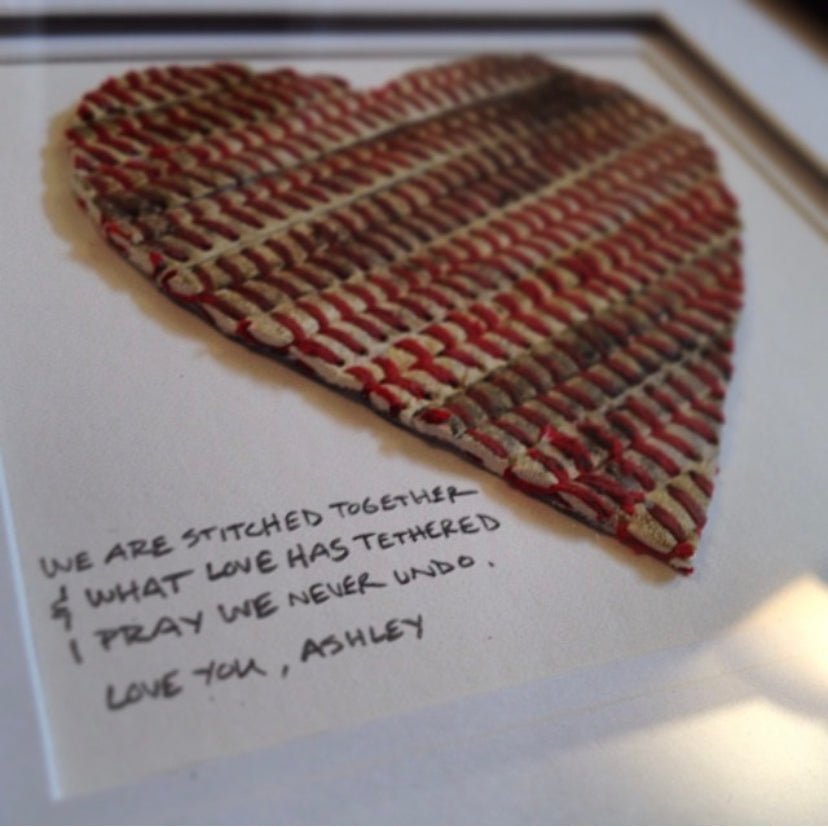 WE ARE STITCHED TOGETHER
& WHAT LOVE HAS TETHERED
I PRAY WE NEVER UNDO.
LOVE YOU, ASHLEY